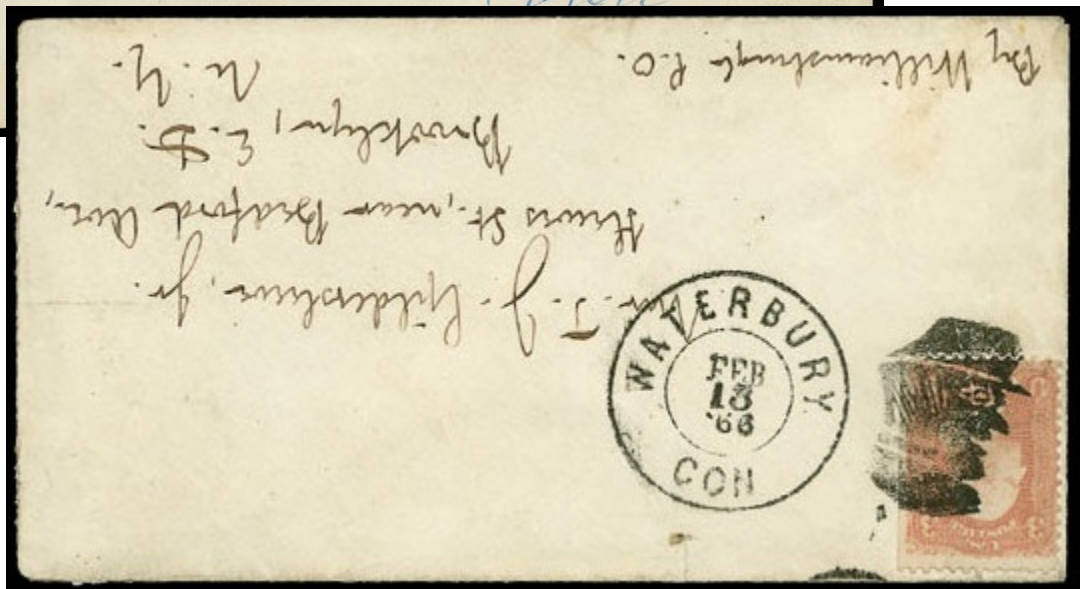 Mr. T. J. Gildersleeve, Jr.
Hewes St., near Bedford Ave,
Brooklyn, E. D.
N. Y.
By Williamsburgh P.O.
WATERBURY
FEB
13
'66
CON
3 3
U.S. POSTAGE